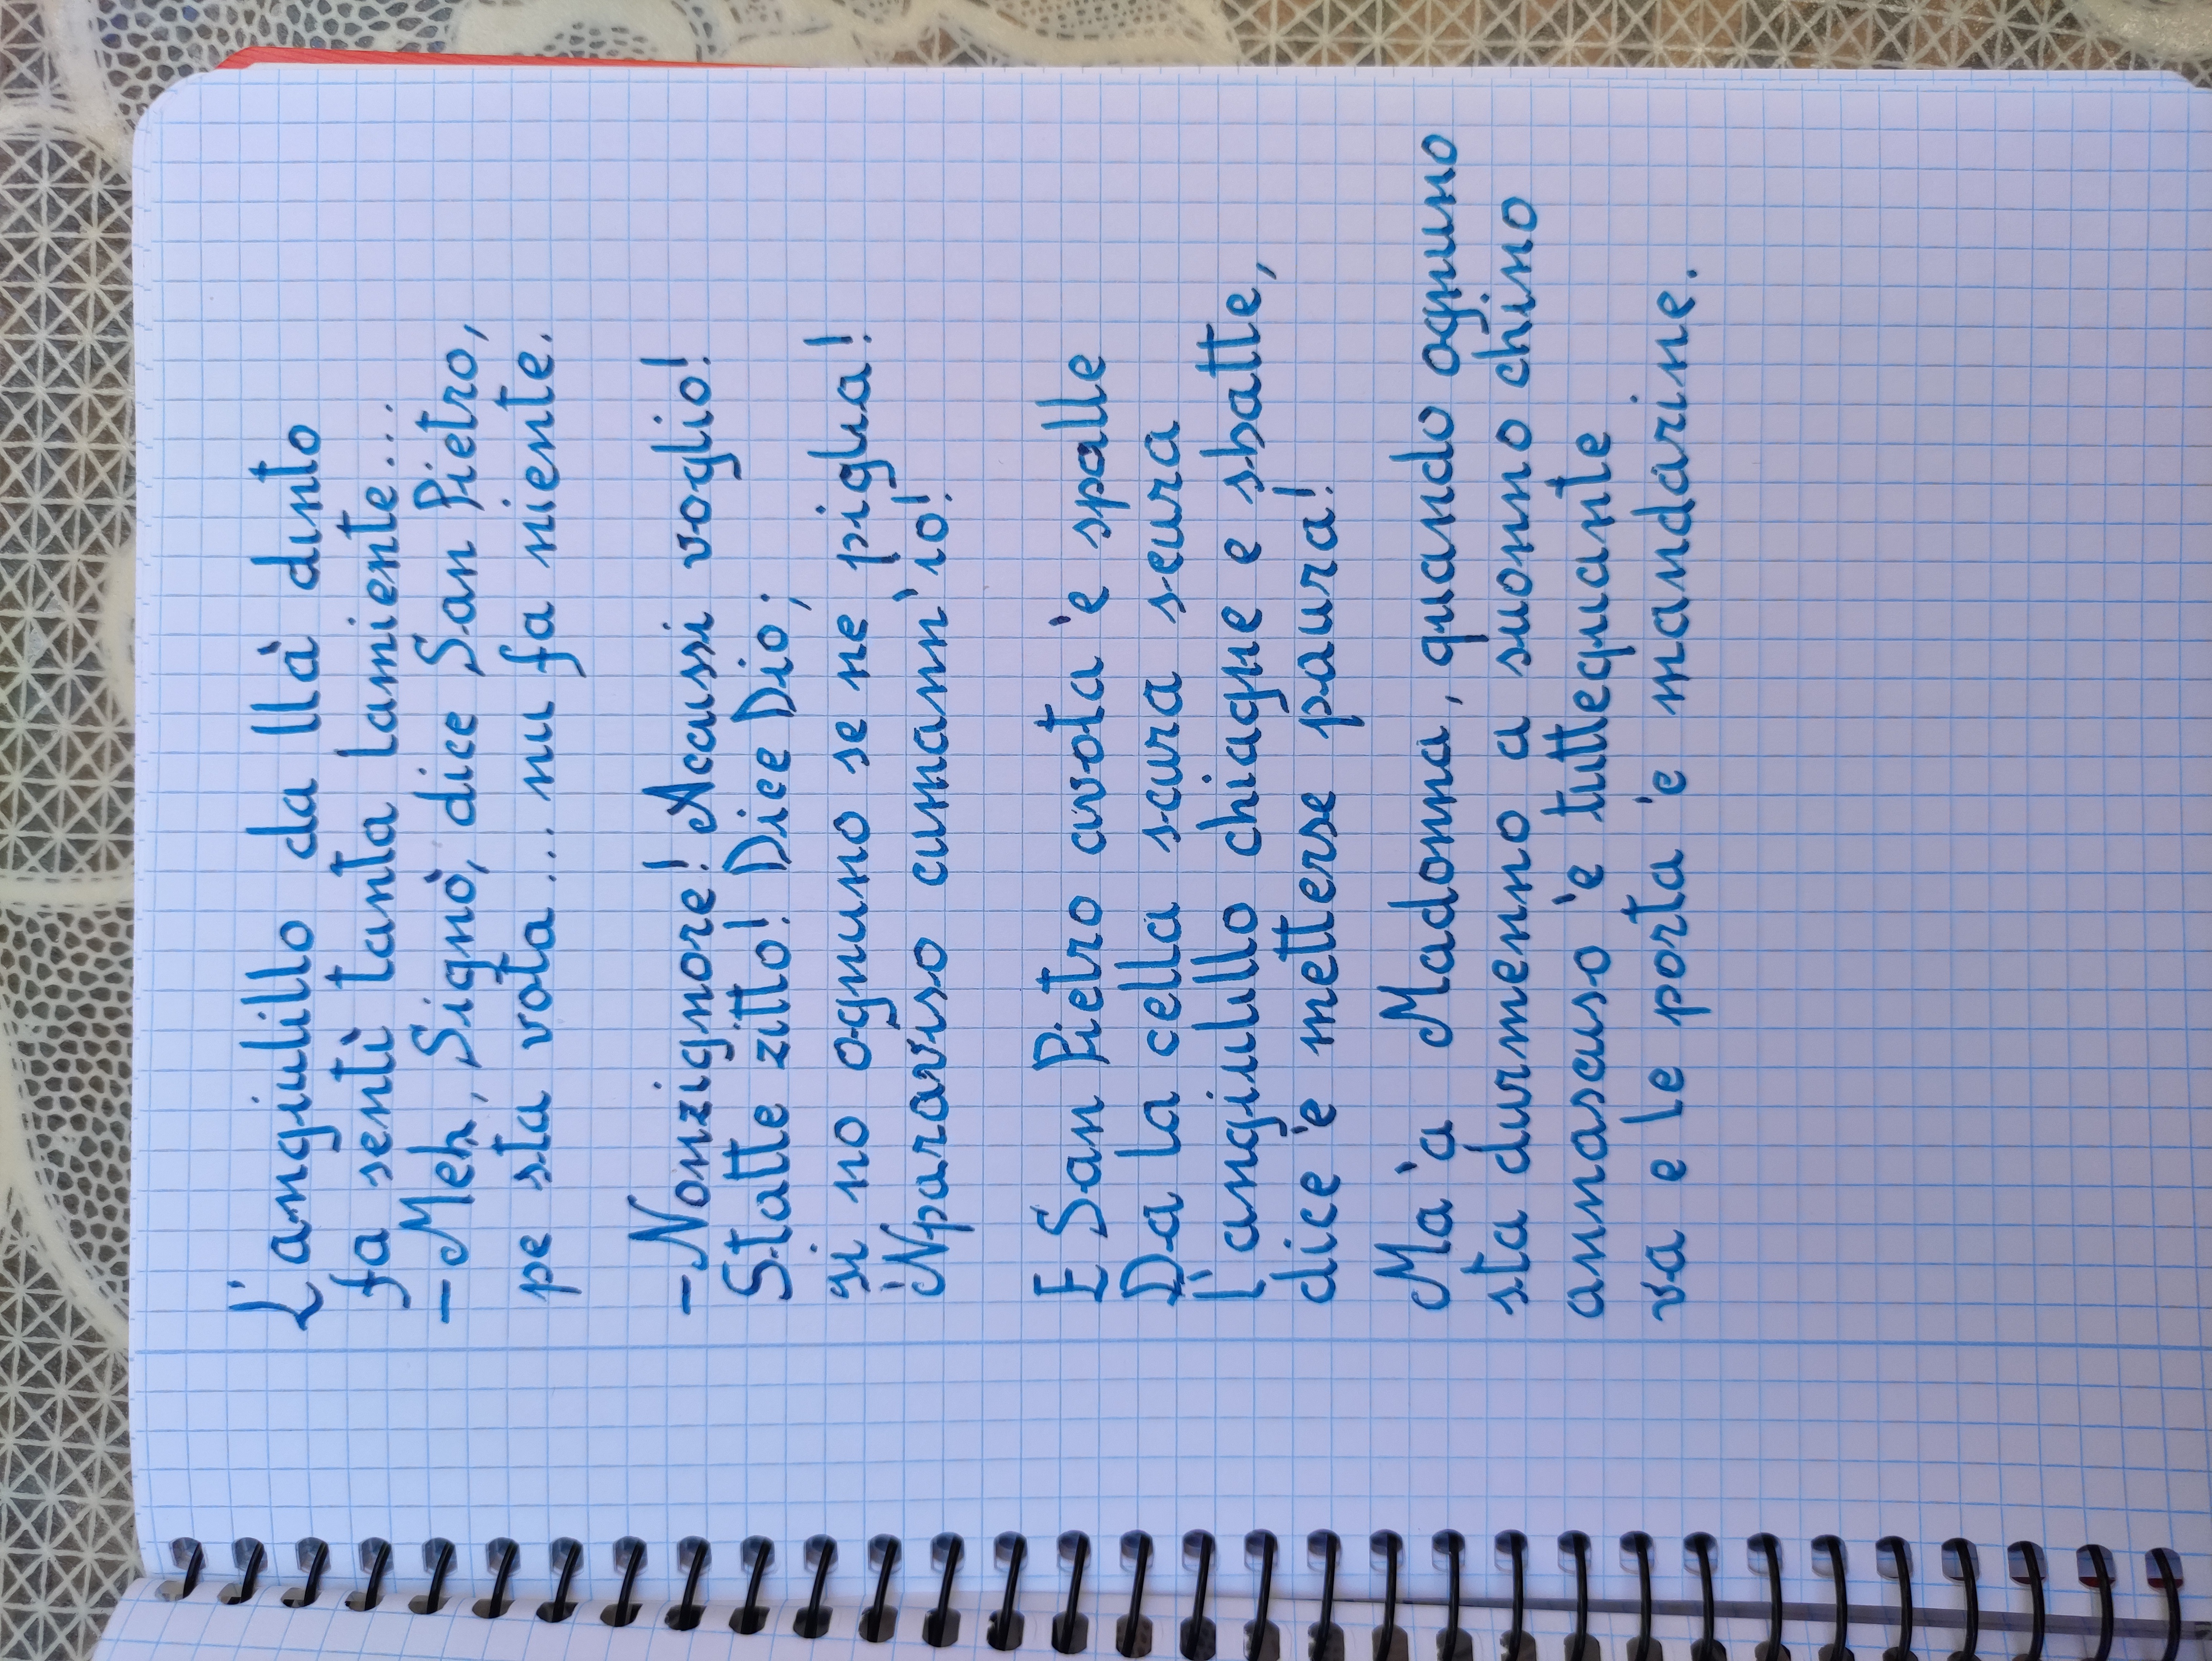 L'angiulillo da llà dinto
fa sentì tanta lamiente...
- Meh, Signò, dice San Pietro,
pe sta vota... nu fa niente.
- Nonzignore! Accussi voglio!
Statte zitto! Dice Dio;
si no ognuno se ne piglia!
'Nparaviso cumann'io!
E San Pietro avota 'e spalle
Da la cella scura scura
l'angiulillo chiagne e sbatte,
dice 'e metterse paura!
Ma 'a Madonna, quando ognuno
sta durmenno a suonno chino
annascuso 'e tuttequante
va e le porta 'e mandarine.